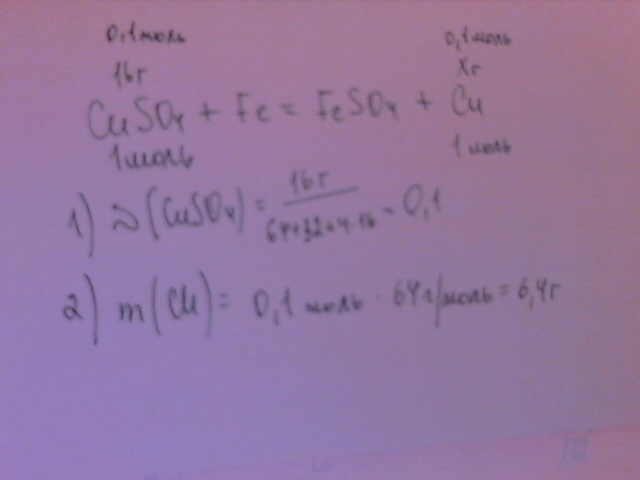 0,1 моль 0,1 моль
16 г Xг
CuSO4 + Fe = FeSO4 + Cu
1 моль 1 моль
1) ν(CuSO4) = 16 г / 64+32+4·16 = 0,1
2) m(Cu) = 0,1 моль · 64 г/моль = 6,4 г